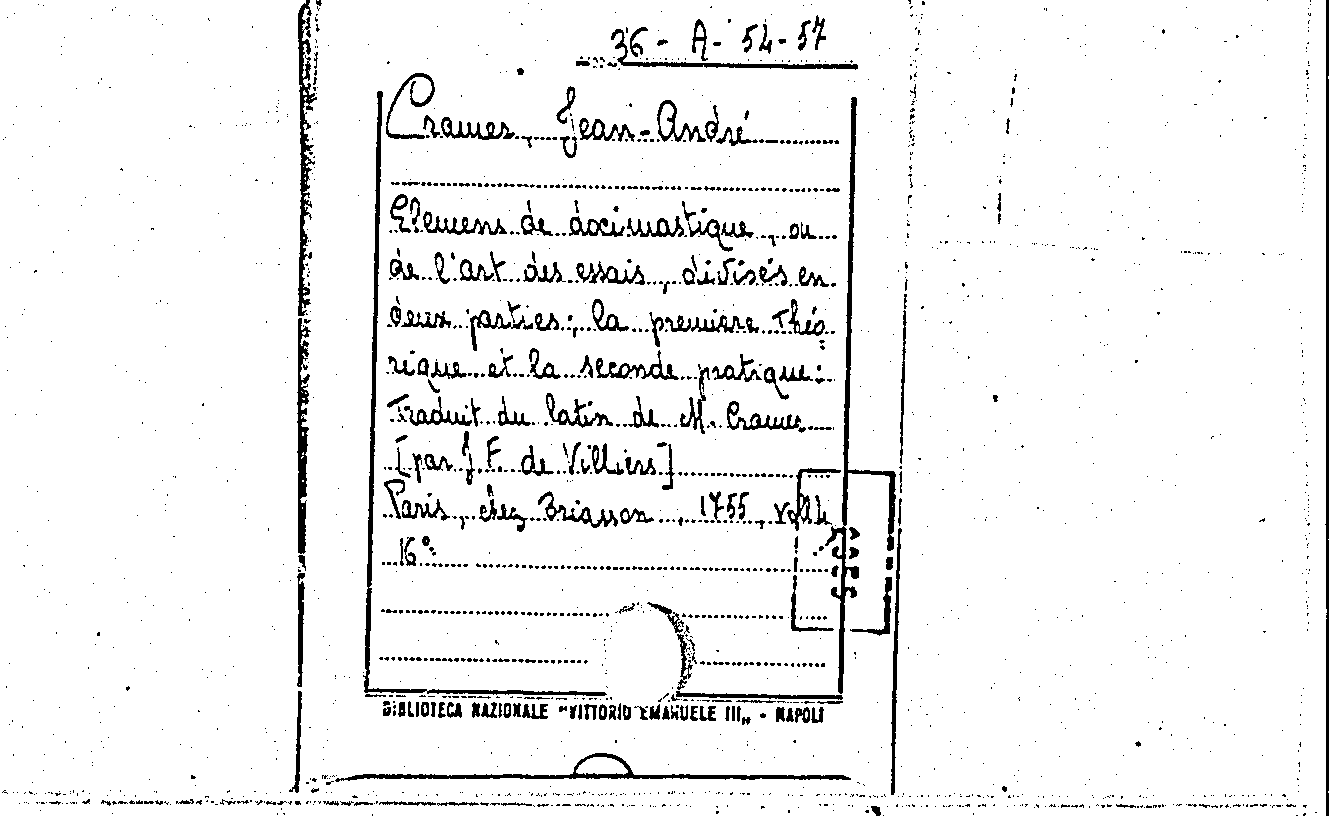 36 - A - 54-57
Cramer, Jean-André
Elemens de docimastique, ou
de l'art des essais, divisés en
deux parties; la première Théo
rique et la seconde pratique:
Traduit du latin de M. Cramer
[par J. F. de Villiers]
Paris, chez Briasson, 1755, voll 4
16°
BIBLIOTECA NAZIONALE "VITTORIO EMANUELE III„ - NAPOLI